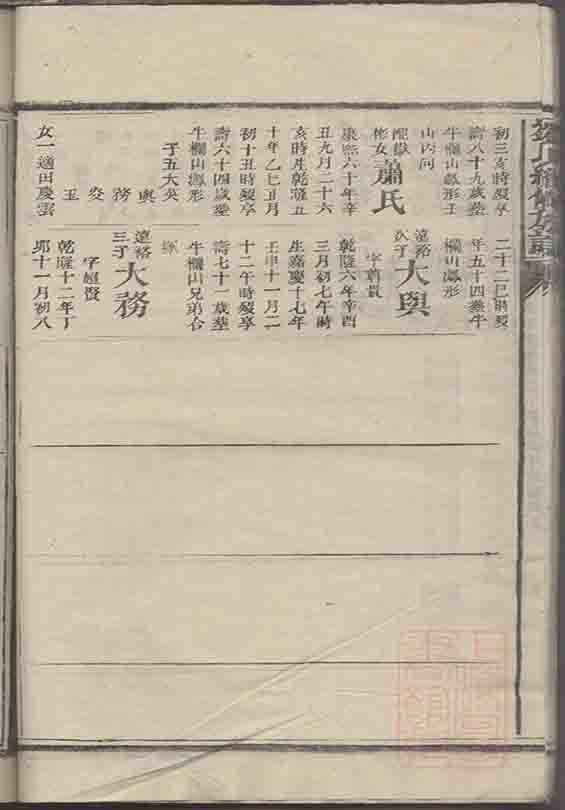 初三亥時歿享
壽八十九歲塟
牛欄山鳳形壬
山丙向
彬女蕭氏
康熙六十年辛
丑九月二十六
亥時生乾隆五
十年乙巳正月
初十丑時歿享
壽六十四歲塟
牛欄山鳳形
子五大英
與
務
玉
女一適田慶雲
二十二巳時歿
年五十四塟牛
欄山鳳形
遠裕次子大與
乾隆六年辛酉
三月初七午時
生嘉慶十七年
壬申十一月二
十二午時歿享
壽七十一歲塟
牛欄山兄弟合
塚
遠裕三子大務
字超賢
乾隆十二年丁
卯十一月初八